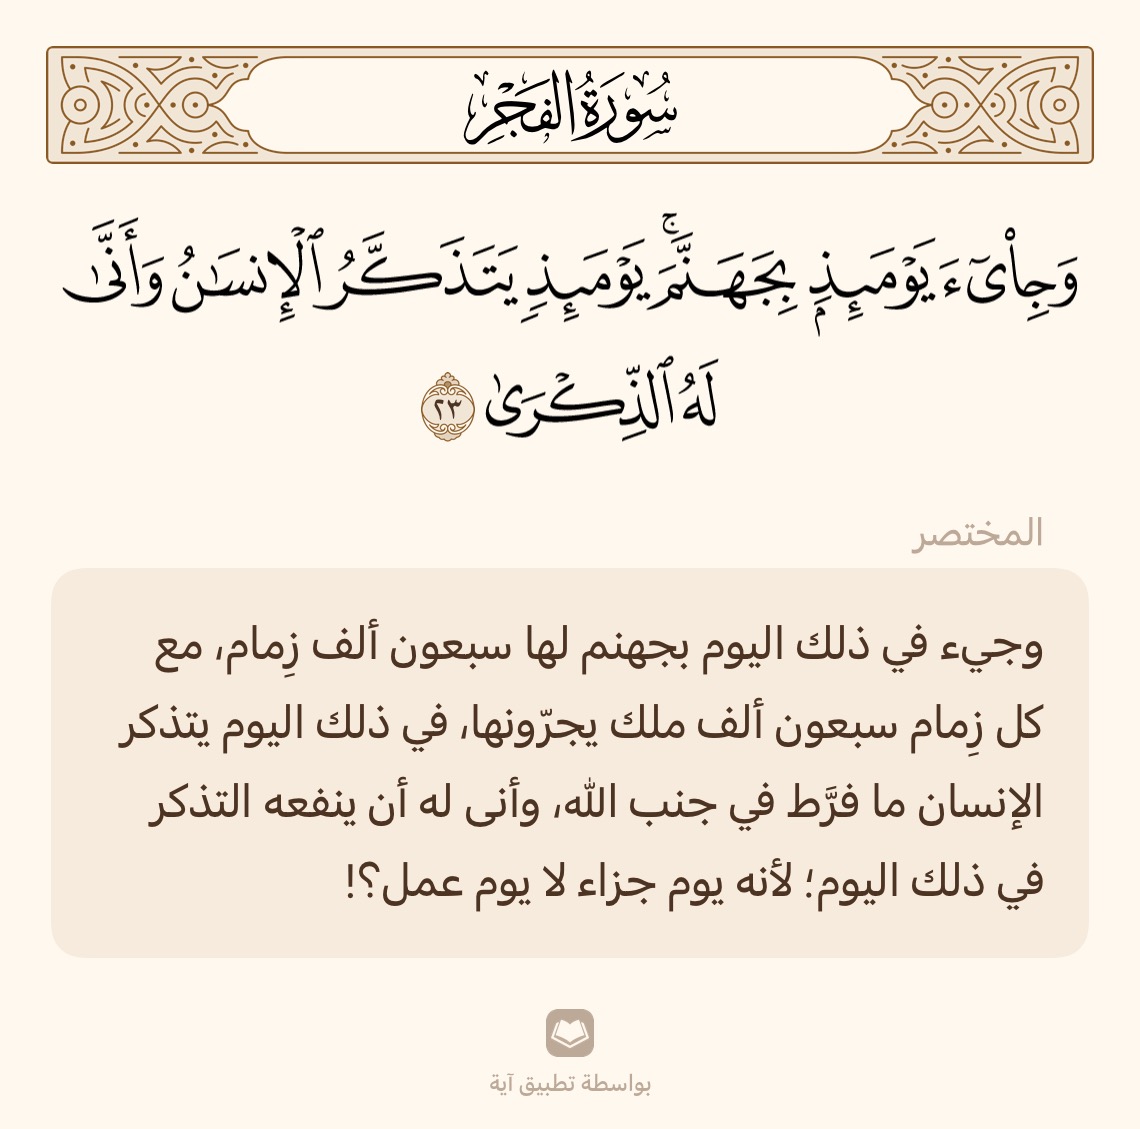 سُورَةُ الفَجْرِ
وَجِاْيٓءَ يَوۡمَئِذِۭ بِجَهَنَّمَۚ يَوۡمَئِذٖ يَتَذَكَّرُ ٱلۡإِنسَٰنُ وَأَنَّىٰ
لَهُ ٱلذِّكۡرَىٰ ٢٣
المختصر
وجيء في ذلك اليوم بجهنم لها سبعون ألف زِمام، مع
كل زِمام سبعون ألف ملك يجرّونها، في ذلك اليوم يتذكر
الإنسان ما فرَّط في جنب الله، وأنى له أن ينفعه التذكر
في ذلك اليوم؛ لأنه يوم جزاء لا يوم عمل؟!
بواسطة تطبيق آية